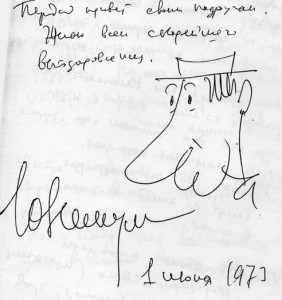 Передай привет своим подругам.
Желаю всем скорейшего
выздоровления.
1 июня 1973